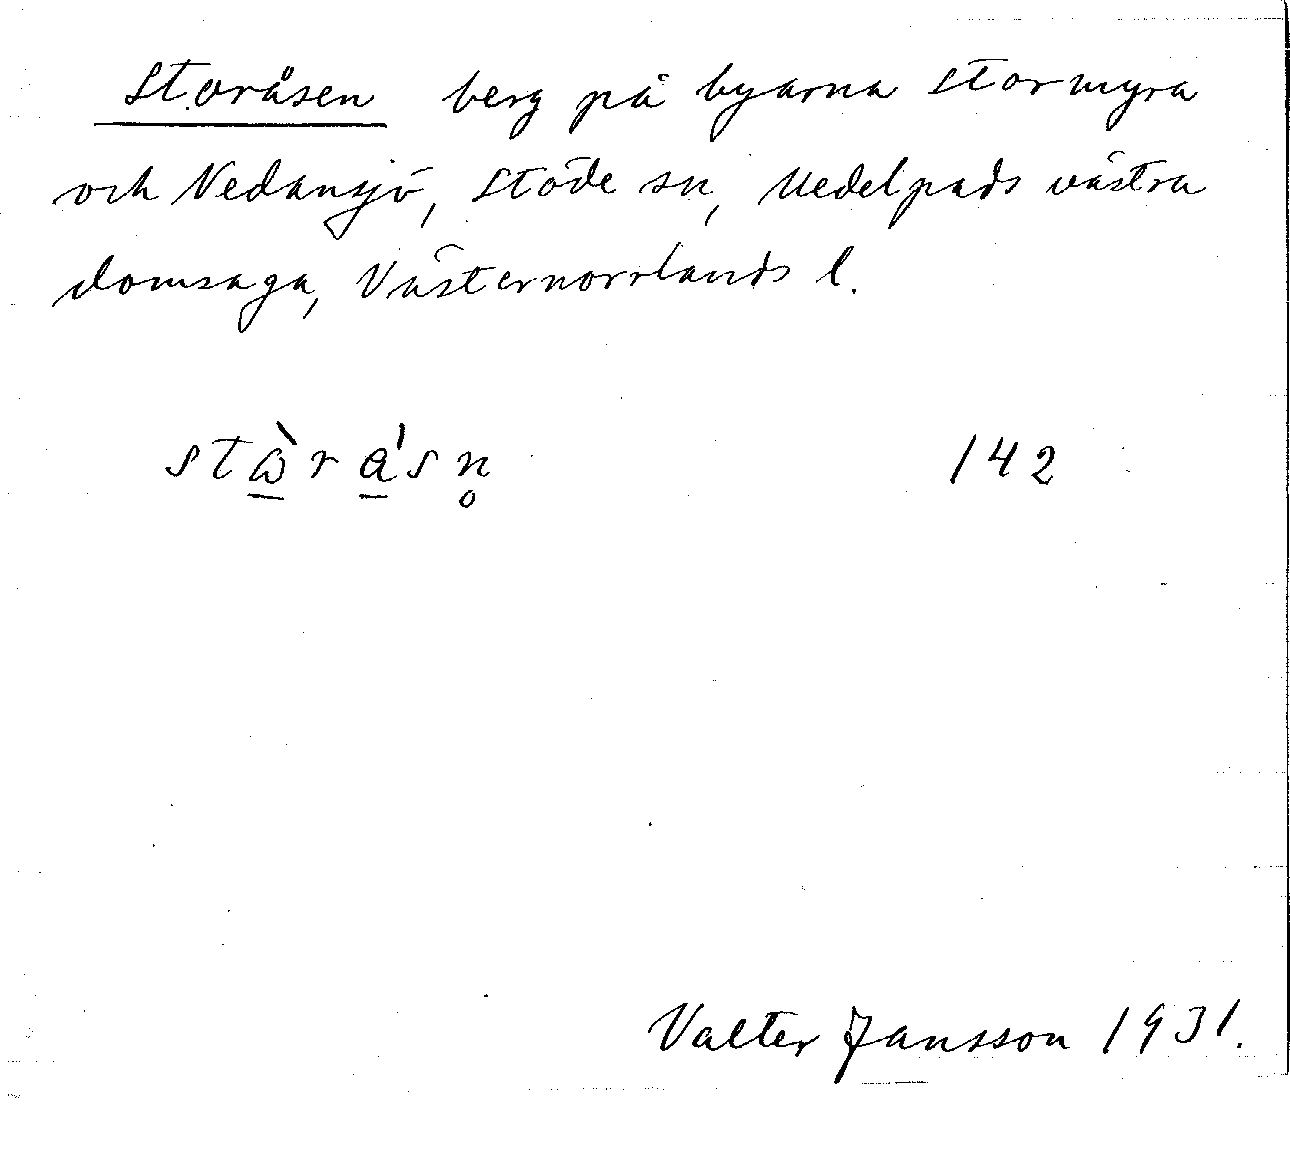 Storåsen berg på byarna Stormyra
och Nedansjö, Stöde sn, Medelpads västra
domsaga, Västernorrlands l.
stὼ̱ra̱'sn̥ 142
Valter Jansson 1931.